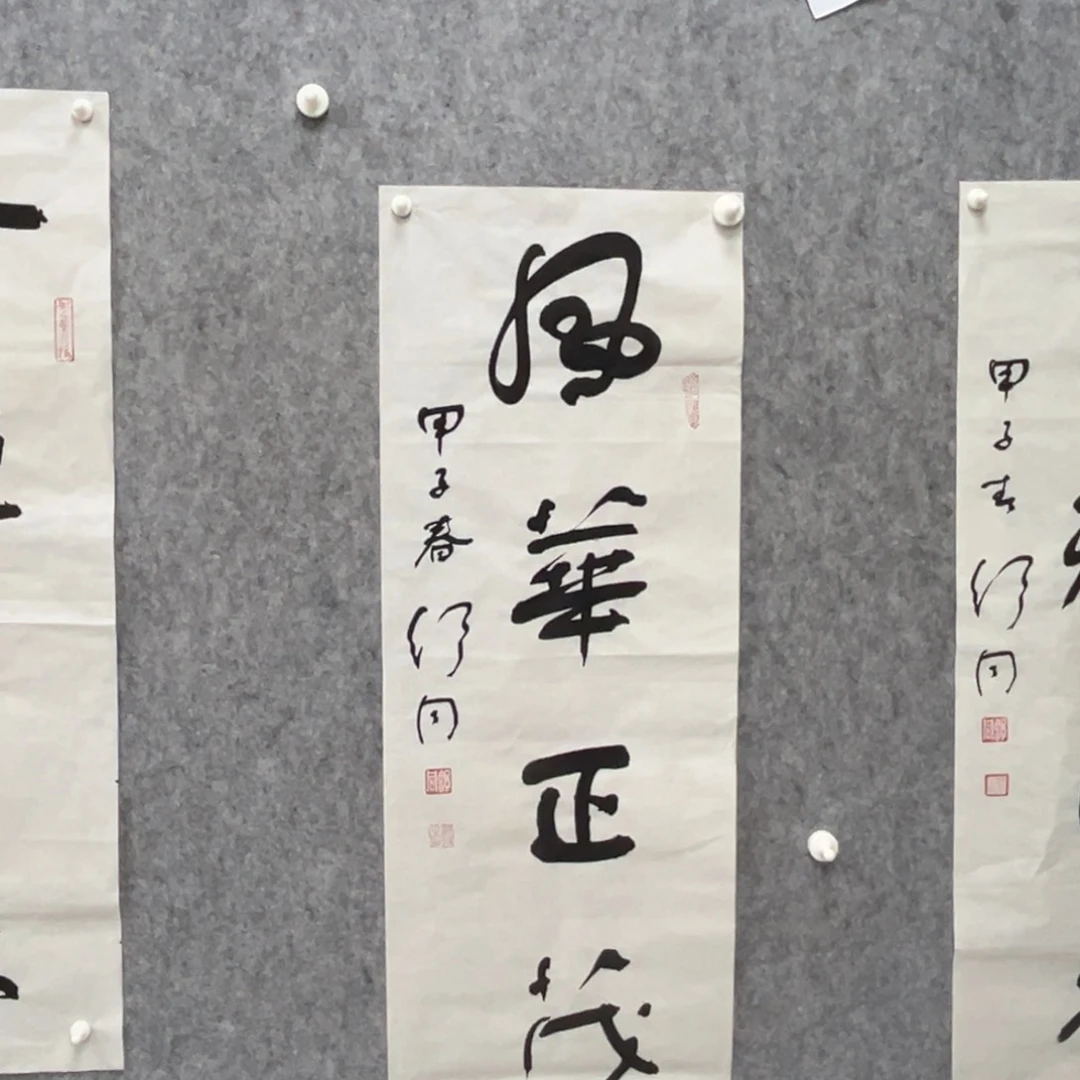 風華正茂
甲子春 舒同
甲子春 舒同